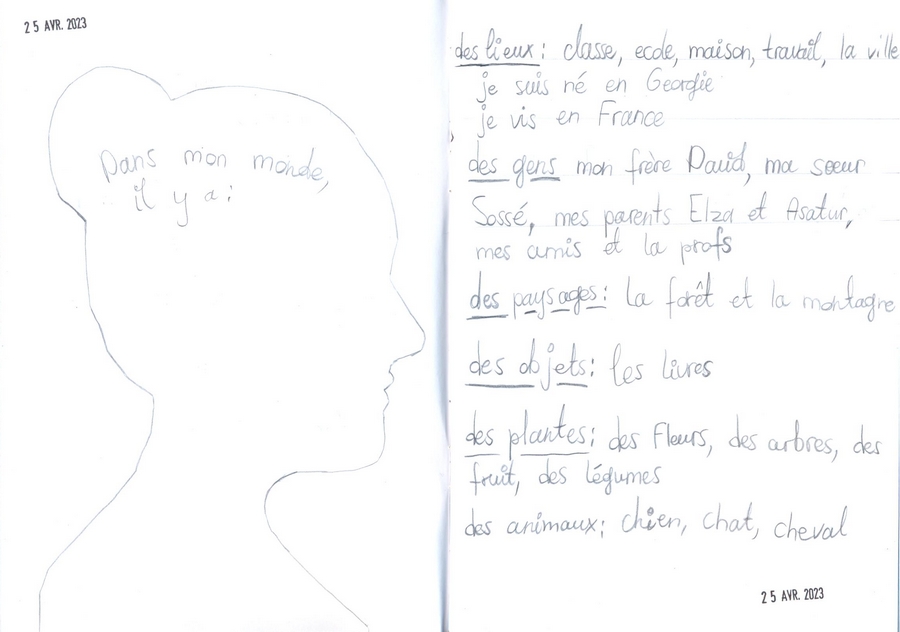 25 AVR. 2023
Dans mon monde,
il y a :
des lieux : classe, ecole, maison, travail, la ville
je suis né en Georgie
je vis en France
des gens mon frère David, ma soeur
Sossé, mes parents Elza et Asatur,
mes amis et la profs
des paysages : la forêt et la montagne
des objets : les livres
des plantes : des Fleurs, des arbres, des
fruit, des légumes
des animaux : chien, chat, cheval
25 AVR. 2023